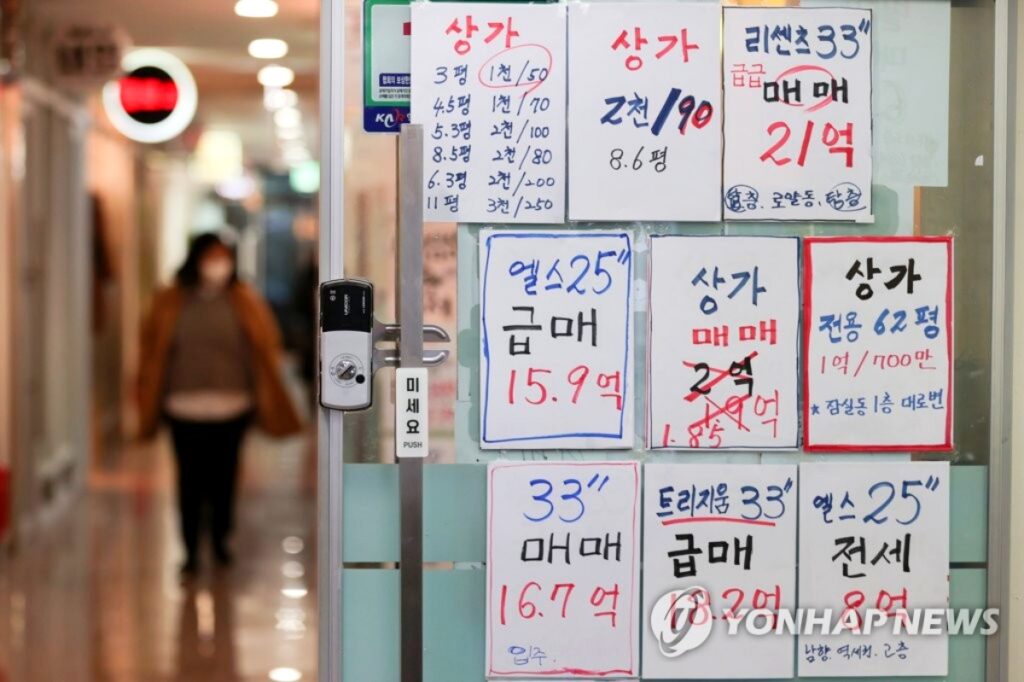 상가
3평 1천/50
4.5평 1천/70
5.3평 2천/100
8.5평 2천/80
6.3평 2천/200
11평 3천/250
상가
2천/90
8.6평
리센츠 33"
급급
매매
21억
로얄동, 탑층
엘스 25"
급매
15.9억
상가
매매
2억
1.9억
1.85
상가
전용 62평
1억/700만
★ 잠실동 1층 대로변
33"
매매
16.7억
입주
트리지움 33"
급매
18.2억
엘스 25"
전세
8억
남향. 역세권. 고층
미세요
PUSH
UNICOR
YONHAP NEWS